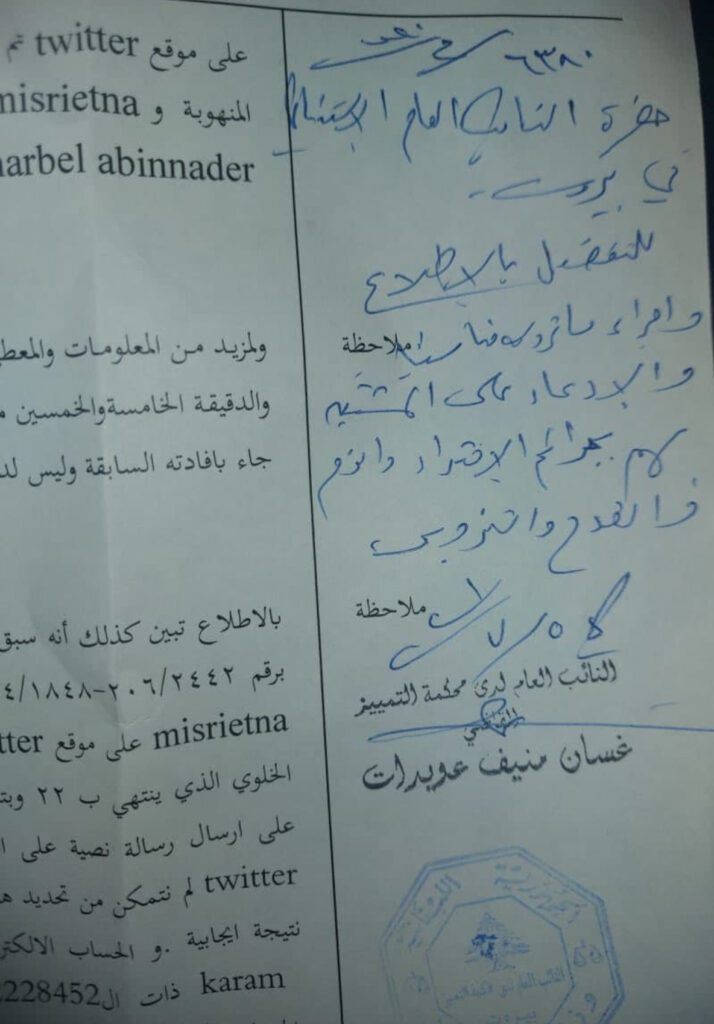 ٦٣٨٠
حضرة النائب العام الاستئنافي
في بيروت -
للتفضل بالاطلاع
واجراء ما ترونه مناسبا
والادعاء على المشتبه
بهم بجرائم الافتراء والذم
والقدح والتزوير
ملاحظة
ملاحظة
النائب العام لدى محكمة التمييز
القاضي
غسان منيف عويدات
الجمهورية اللبنانية
النائب العام لدى محكمة التمييز
بيروت
على موقع twitter تم
المنهوبة و misrietna
harbel abinnader
ولمزيد من المعلومات والمعط
والدقيقة الخامسة والخمسين م
جاء بافادته السابقة وليس لد
بالاطلاع تبين كذلك أنه سبق
برقم ٢٠٦/٢٤٤٢-٤/١٨٤٨
misrietna على موقع tter
الخلوي الذي ينتهي ب ٢٢ وبت
على ارسال رسالة نصية على ا
twitter لم نتمكن من تحديد ه
نتيجة ايجابية .و الحساب الالكتر
karam ذات ال228452